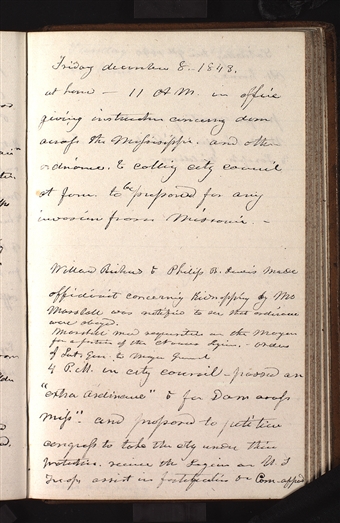 Friday december 8- 1843.
at home - 11 A M. in office
giving instruction concerning dam
across the Mississippi. and other
ordinance. & callig city council
at four. to be prepared for any
invasion from Missouri. -
Willard Richards & Philip B. Lewis made
affidavit concerning Kidnapping by Mo
Marshall was notified to see that ordinance
were obeyed.
Marshall made requisition on the Mayor
for a portion of the Nauvoo Legion. - orders
of Lieut. Gen. to Major General
4 P.M. in city council - passed an
"extra ordinance" & for Dam across
Miss". and proposed to petition
congress to take the city under their
protection. receive the Legion as U. S
Troops assist in fortification & Com. appd